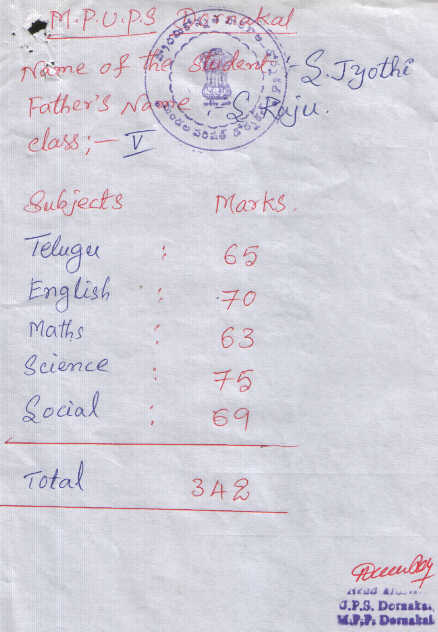 M.P.U.P.S Dornakal
Name of the student :- S. Jyothi
Father's Name : S. Raju.
class ;- V
Subjects Marks.
Telugu : 65
English : 70
Maths : 63
Science : 75
Social : 69
Total 342
U.P.S. Dornakal,
M.P.P. Dornakal